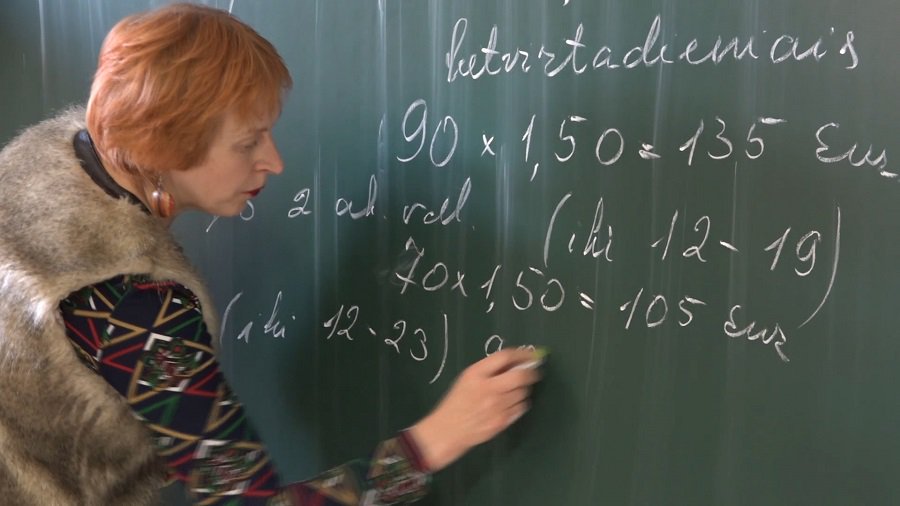 ketvirtadieniais
90 x 1,50 = 135 Eur
2 ak. val. (iki 12-19)
70 x 1,50 = 105 Eur
(iki 12-23)